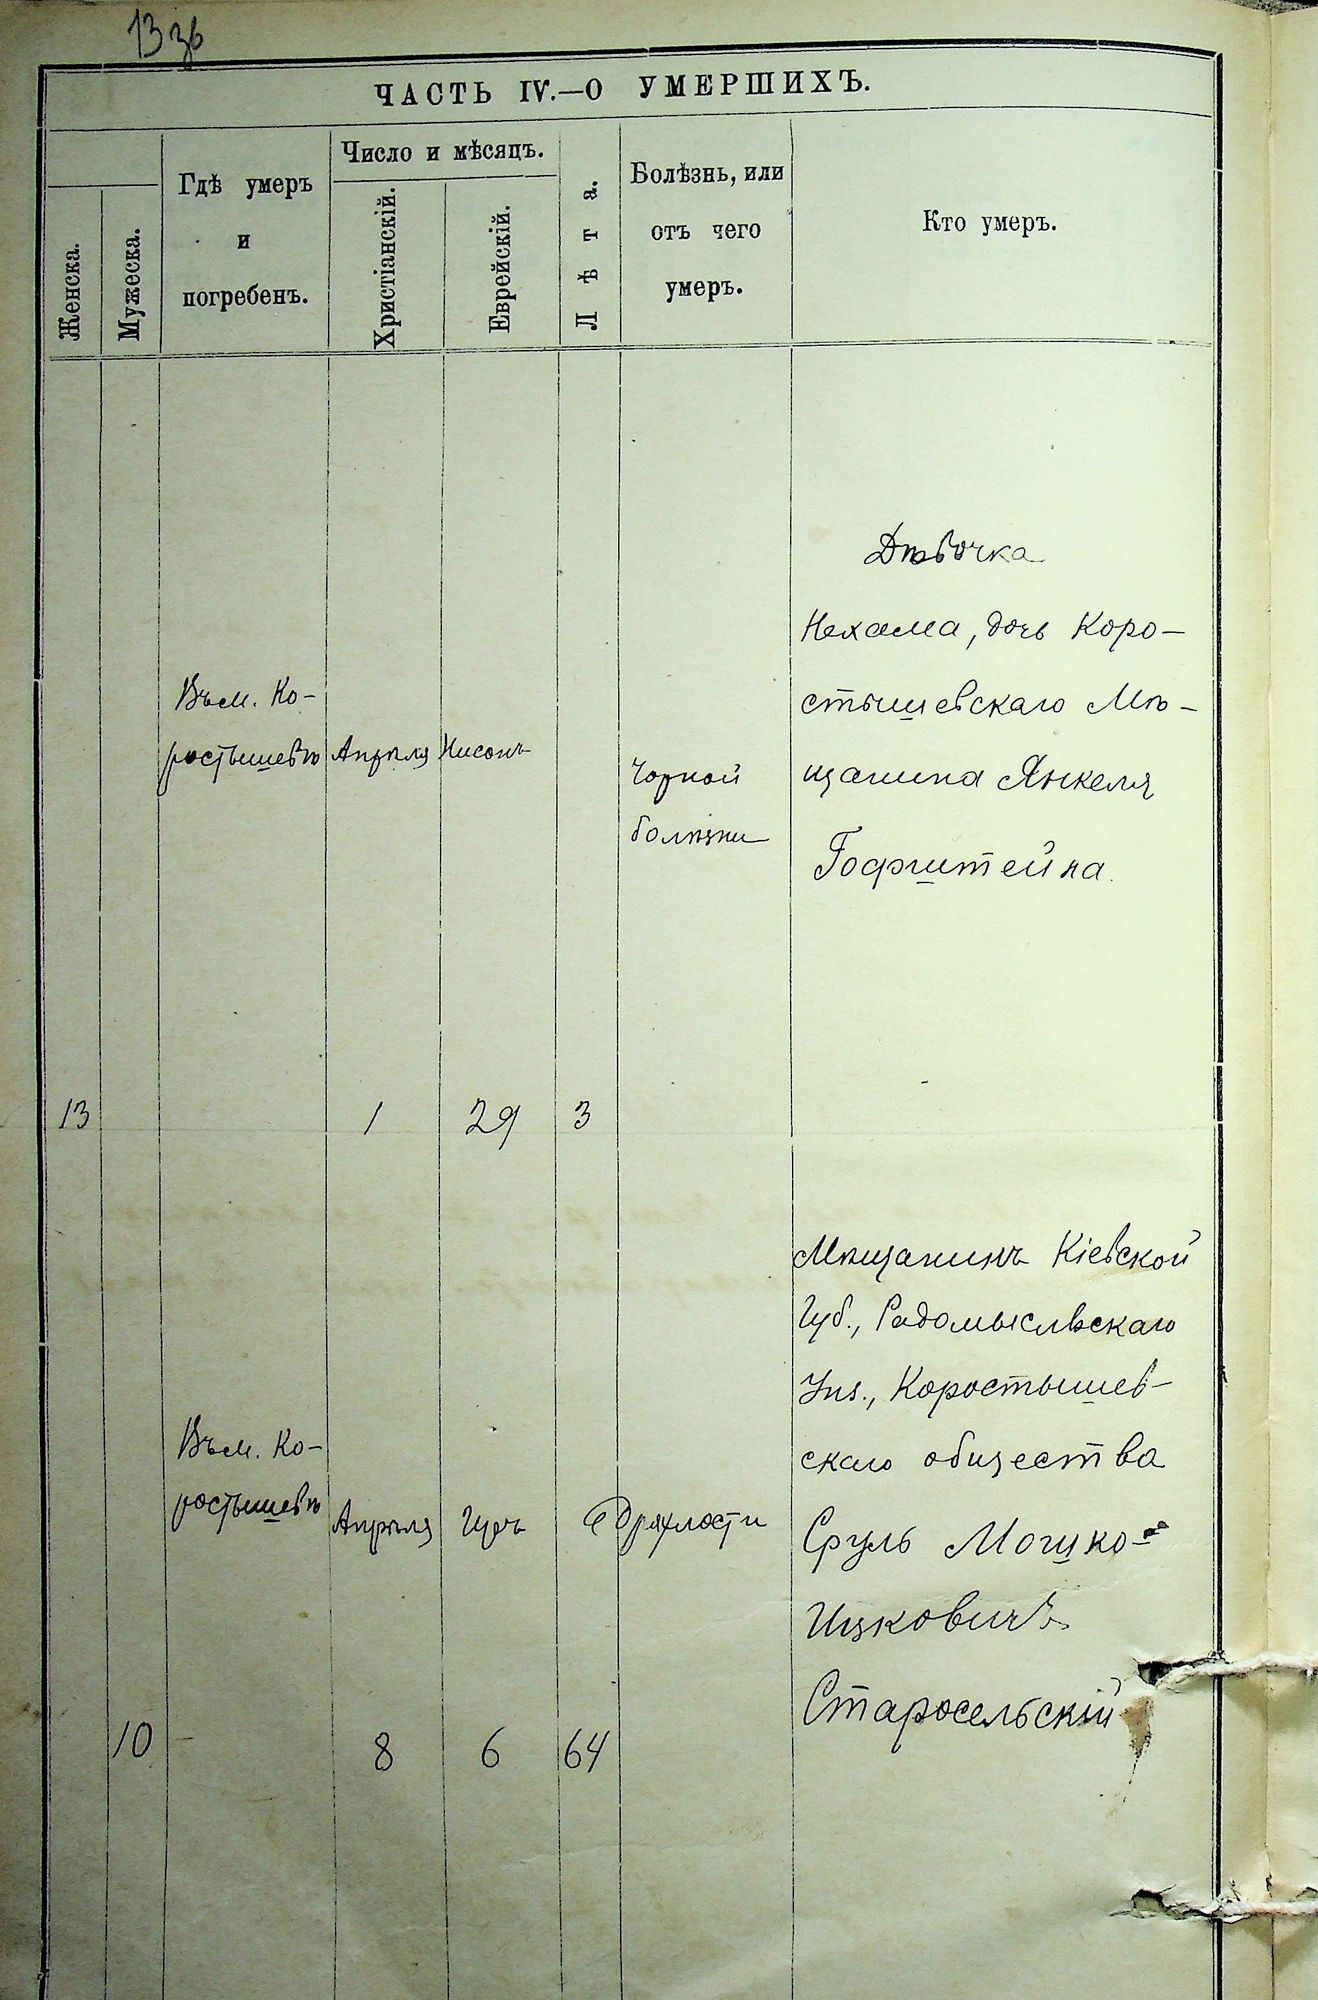 13 зв
ЧАСТЬ IV.—О УМЕРШИХЪ.
Женска.
Мужеска.
Гдѣ умеръ
и
погребенъ.
Число и мѣсяцъ.
Христіанскій.
Еврейскій.
Лѣта.
Болѣзнь, или
отъ чего
умеръ.
Кто умеръ.
13
Въ м. Ко-
ростышевѣ
Апрѣля
1
Нисонъ
29
3
Чорной
болѣзни
Дѣвочка
Нехама, дочь Коро-
стышевскаго Мѣ-
щанина Янкеля
Гофштейна.
10
Въ м. Ко-
ростышевѣ
Апрѣля
8
Іиръ
6
64
дряхлости
Мѣщанинъ Кіевской
Губ., Радомысльскаго
Уѣз., Коростышев-
скаго общества
Сруль Мошко-
Ицковичъ
Старосельскій